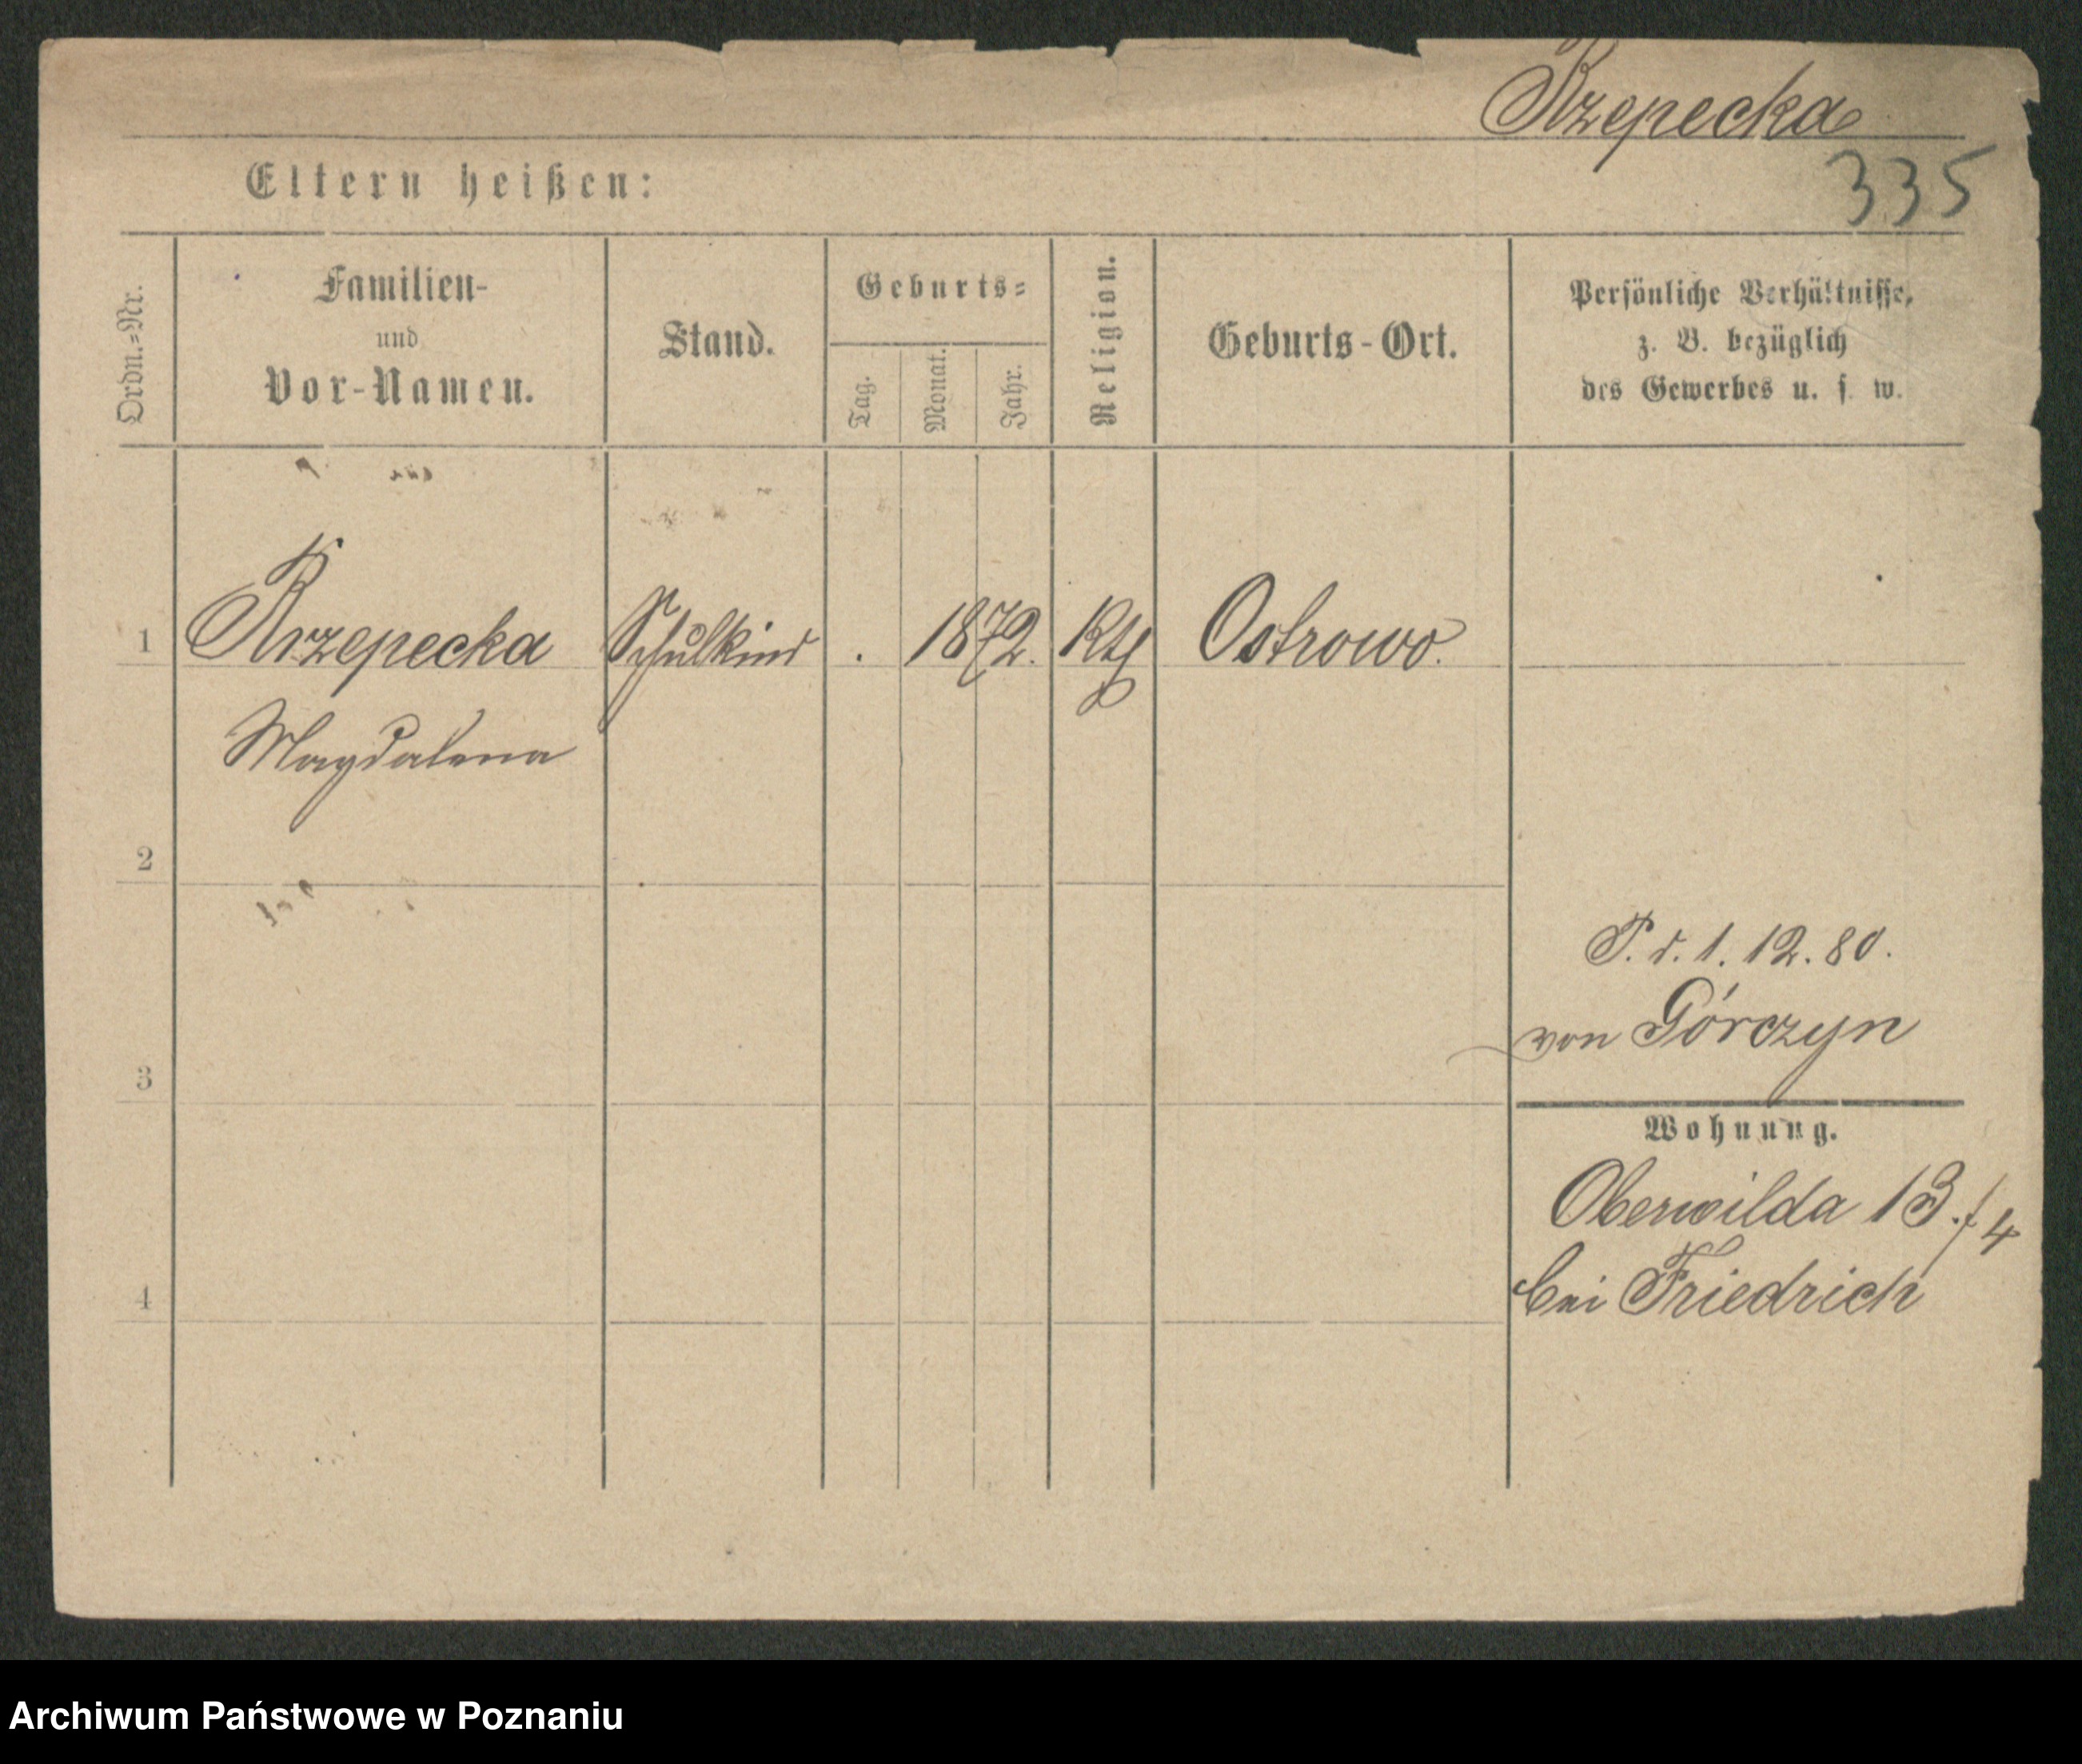 Rzepecka
335
Eltern heißen:
Ordn.-Nr.
Familien-
und
Vor-Namen.
Stand.
Geburts-
Tag.
Monat.
Jahr.
Religion.
Geburts-Ort.
Persönliche Verhältnisse,
z. B. bezüglich
des Gewerbes u. s. w.
1 Rzepecka Schulkind . 1872. Kth Ostrowo.
Magdalena
2
P. d. 1. 12. 80.
von Górczyn
3
Wohnung.
Oberwilda 13./4
bei Friedrich
4
Archiwum Państwowe w Poznaniu